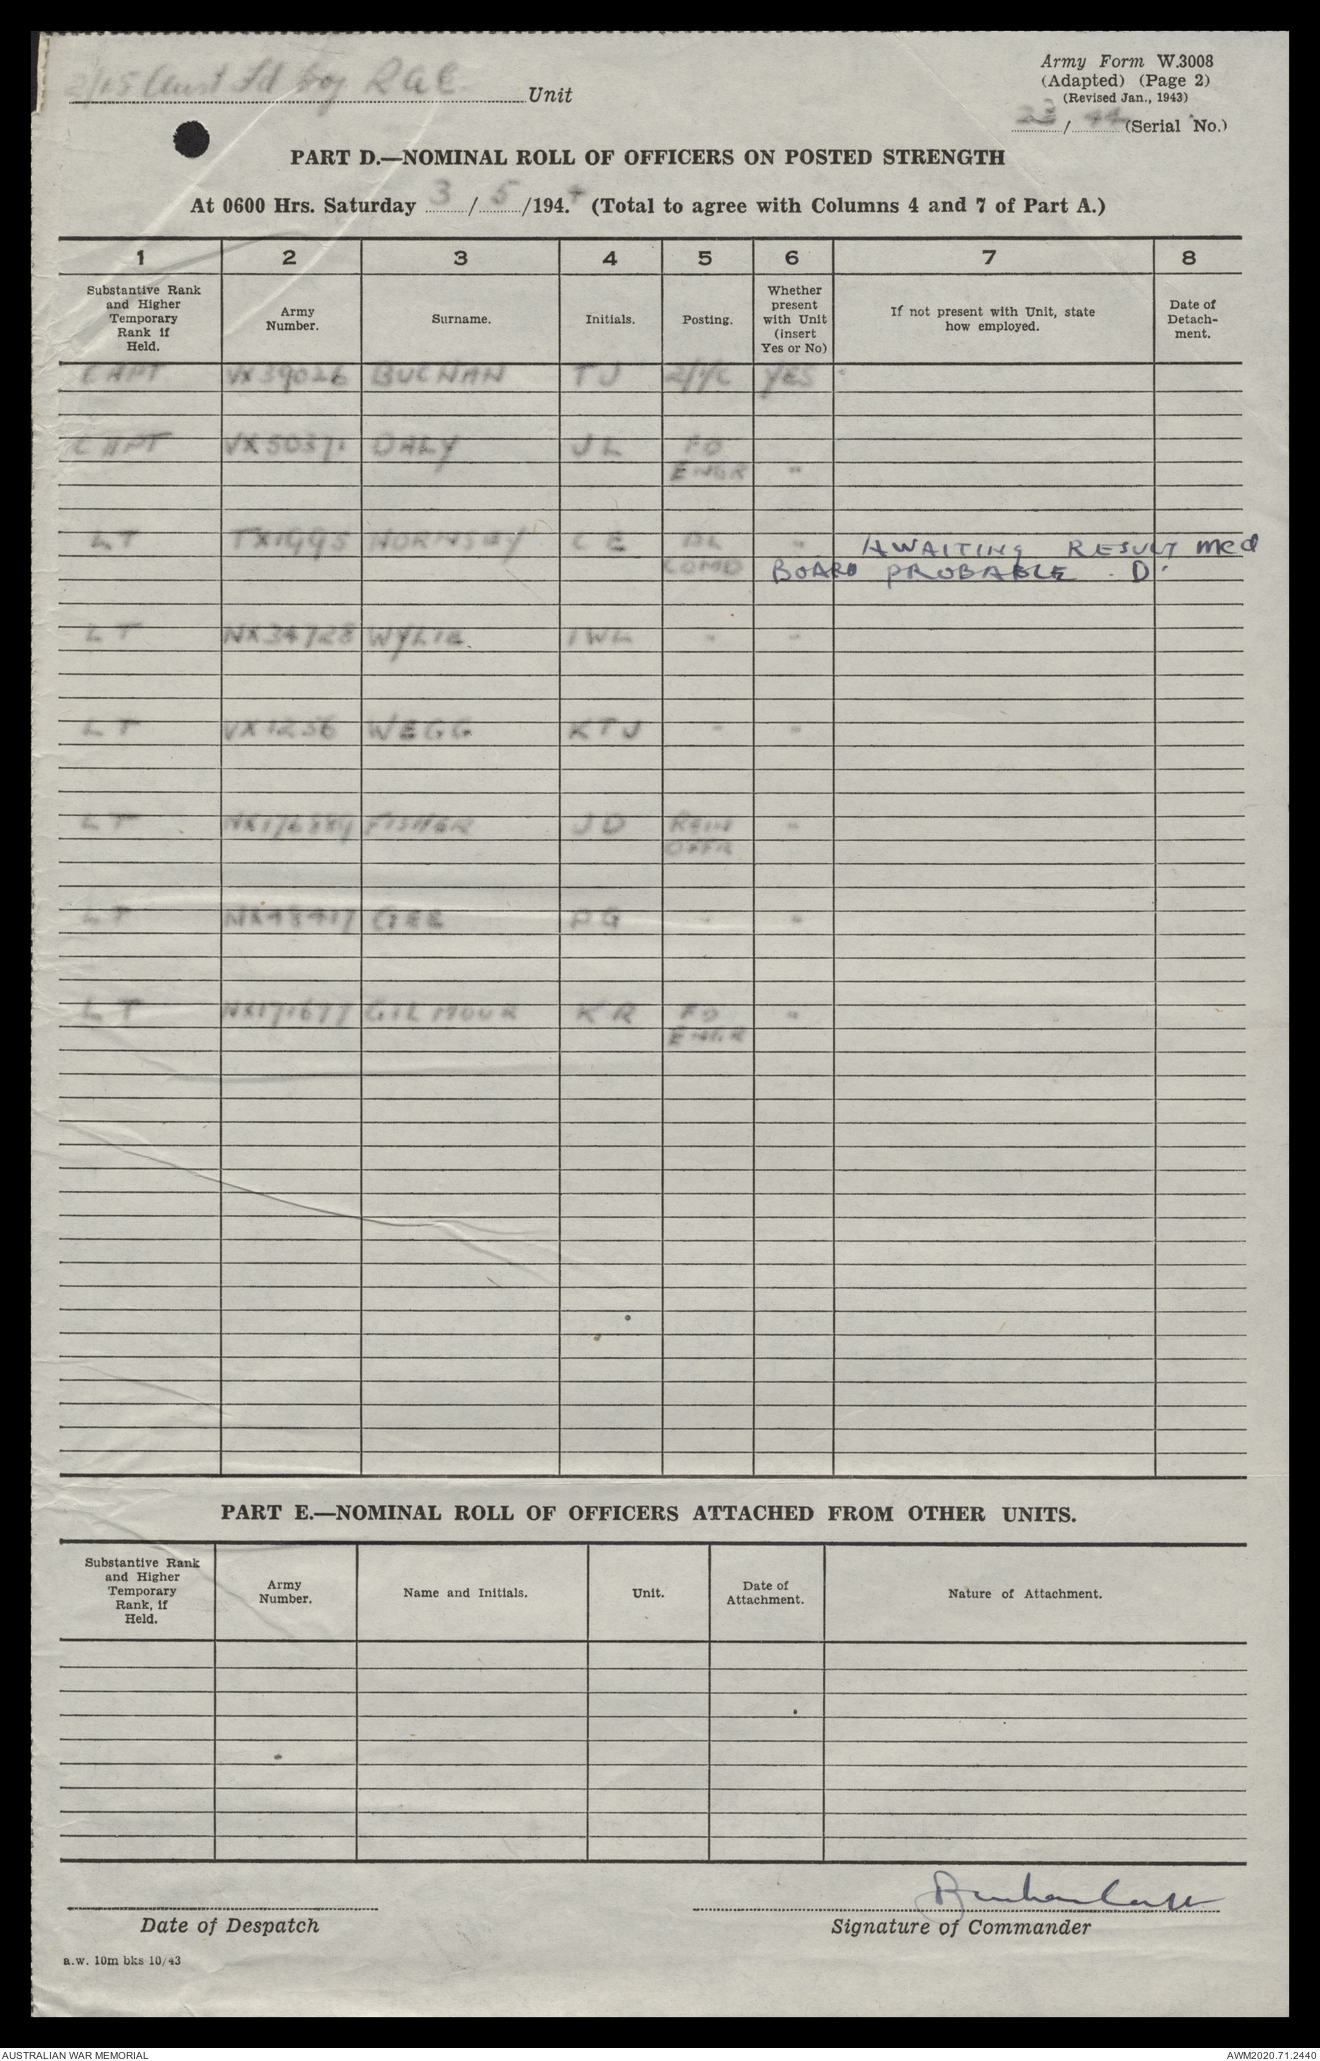 2/15 Aust Fd Coy RAE Unit
Army Form W.3008
(Adapted) (Page 2)
(Revised Jan., 1943)
23 / 44 (Serial No.)
PART D.—NOMINAL ROLL OF OFFICERS ON POSTED STRENGTH
At 0600 Hrs. Saturday 3 / 5 /194.4 (Total to agree with Columns 4 and 7 of Part A.)
1 2 3 4 5 6 7 8
Substantive Rank and Higher Temporary Rank if Held. Army Number. Surname. Initials. Posting. Whether present with Unit (insert Yes or No) If not present with Unit, state how employed. Date of Detach- ment.
CAPT VX39026 BUCHAN T J 2/I/C YES
CAPT DALY J L FD
ENGR "
LT TX1995 HORNSBY C E "
COMD
AWAITING RESULT Med
BOARD PROBABLE D.
LT NX34728 WYLIE I W L " "
LT VX1256 WEGG K T J " "
LT FISHER J D "
OFFR
LT NX48417 GEE P G " "
LT NX171677 GILMOUR K R FD "
ENGR
PART E.—NOMINAL ROLL OF OFFICERS ATTACHED FROM OTHER UNITS.
Substantive Rank and Higher Temporary Rank, if Held. Army Number. Name and Initials. Unit. Date of Attachment. Nature of Attachment.
Buchan Capt
Date of Despatch Signature of Commander
a.w. 10m bks 10/43
AUSTRALIAN WAR MEMORIAL AWM2020.71.2440